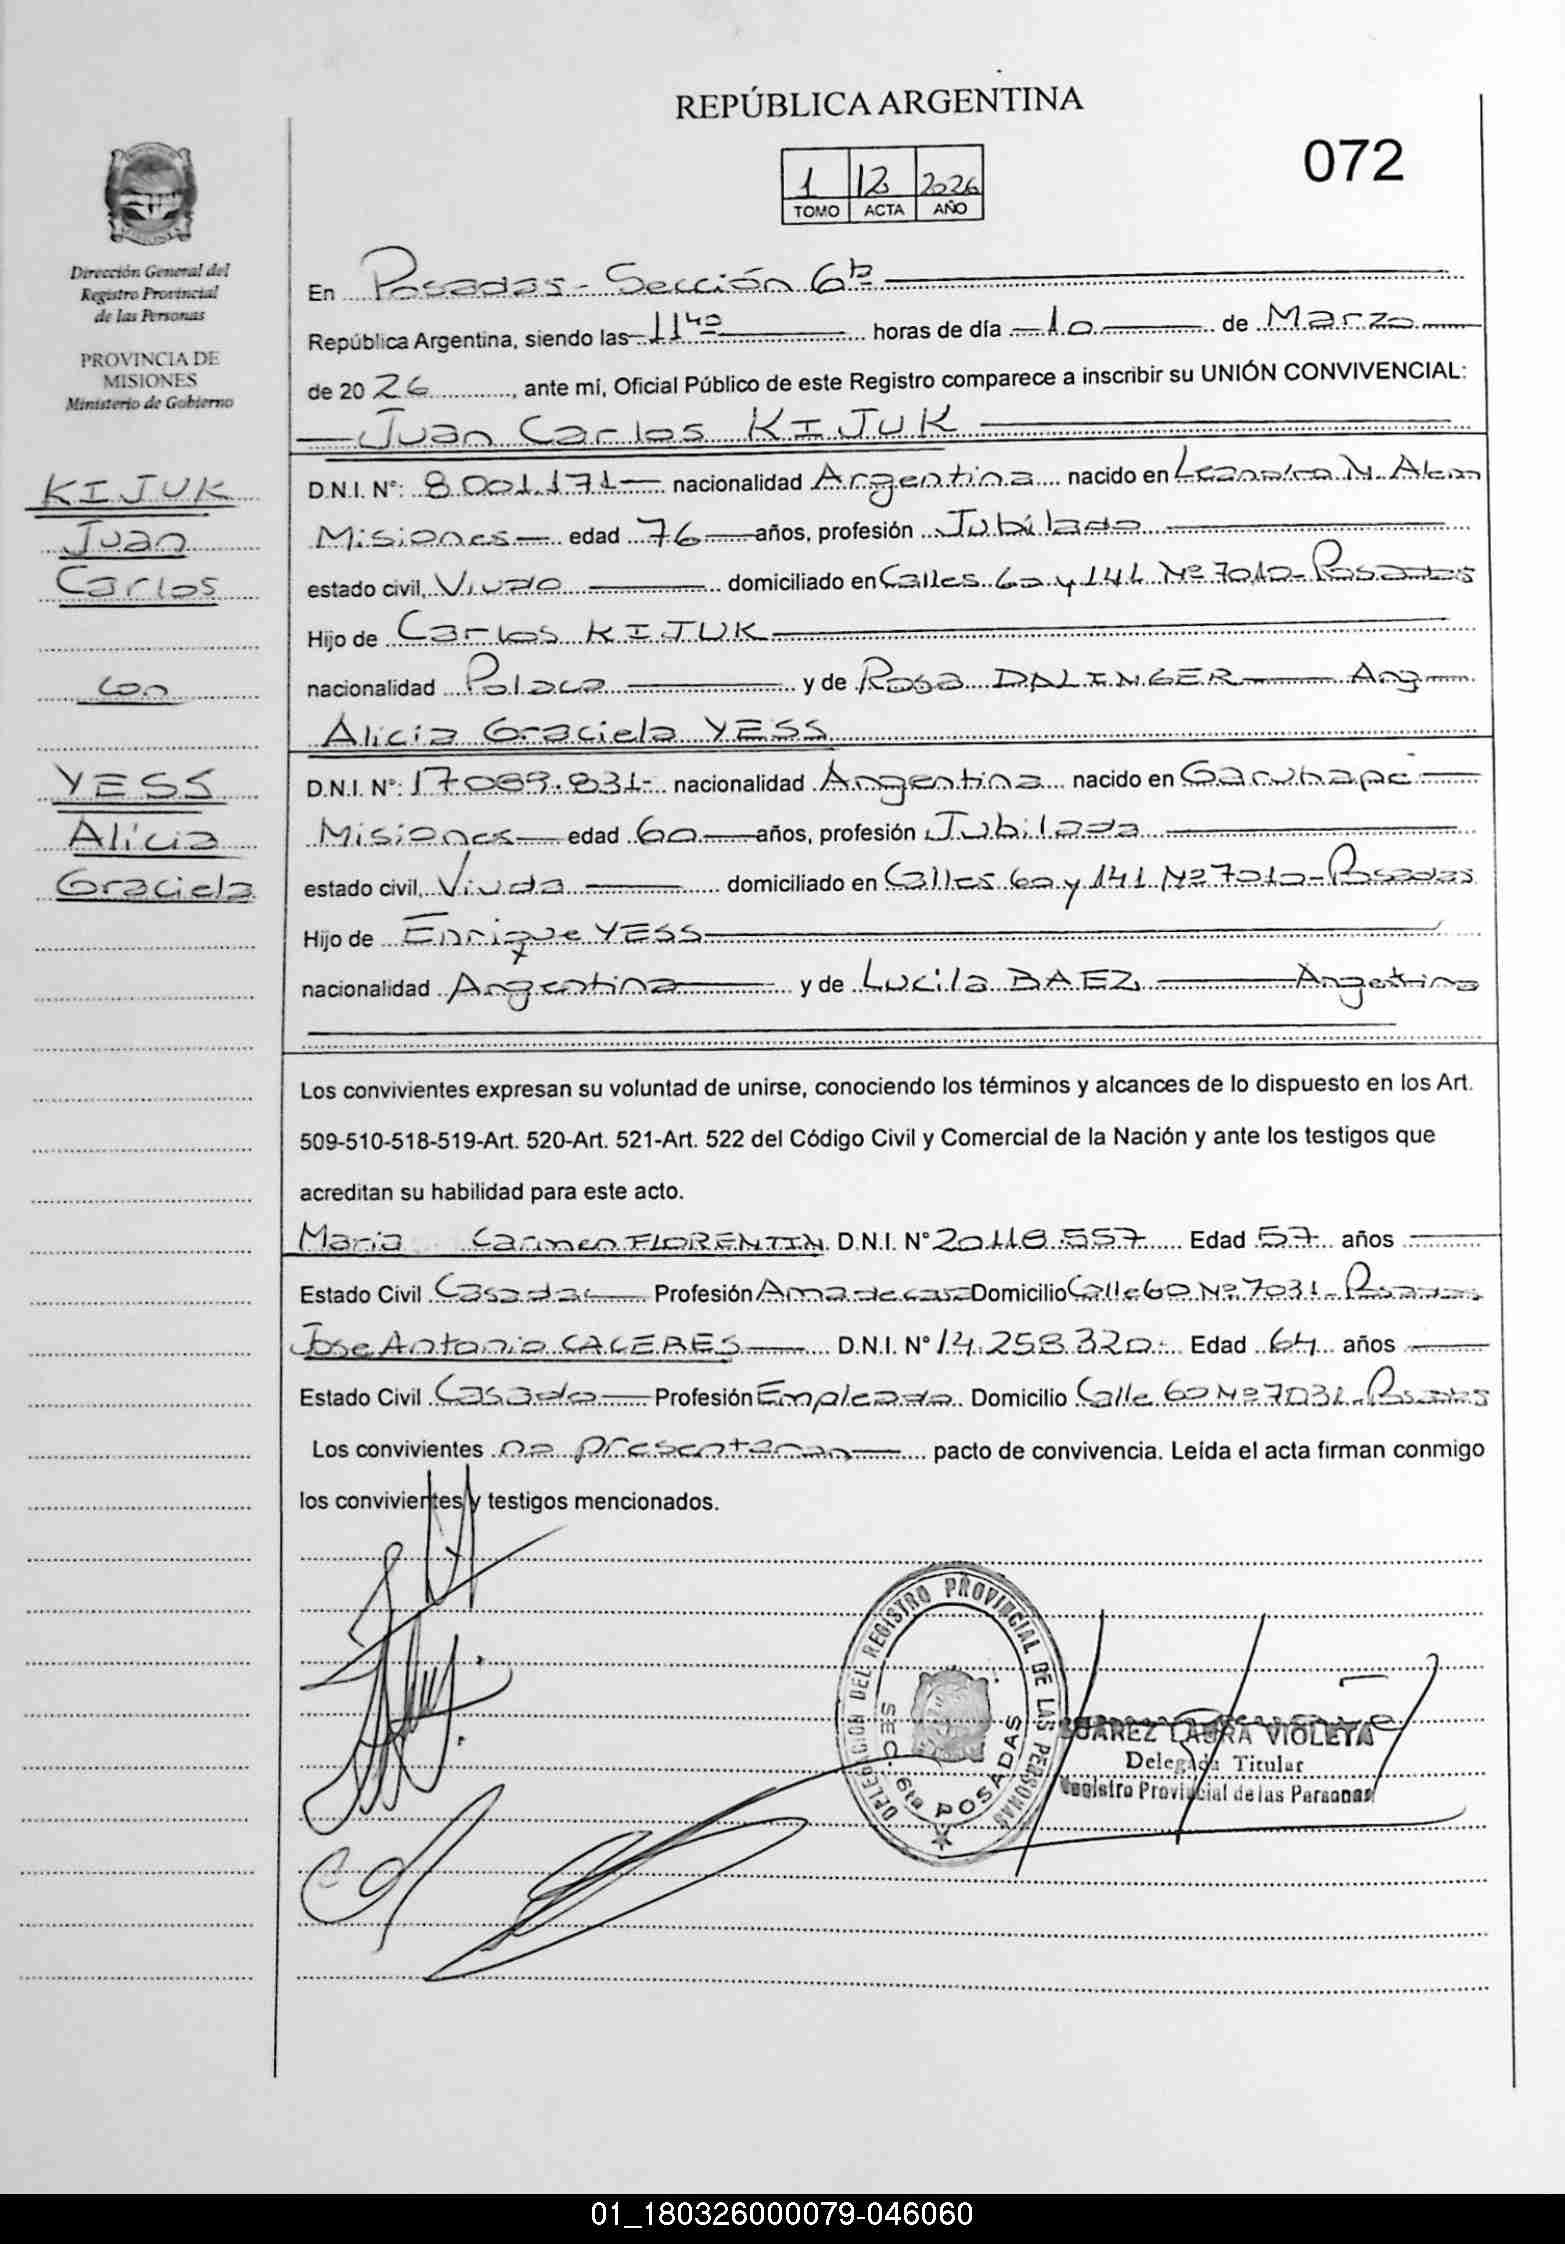 REPÚBLICA ARGENTINA
072
1 12 2026
TOMO ACTA AÑO
Dirección General del
Registro Provincial
de las Personas
PROVINCIA DE
MISIONES
Ministerio de Gobierno
En Posadas - Sección 6ta
República Argentina, siendo las 11 horas de día 10 de Marzo
de 20 26, ante mí, Oficial Público de este Registro comparece a inscribir su UNIÓN CONVIVENCIAL:
Juan Carlos KIJUK
KIJUK
Juan
Carlos
con
YESS
Alicia
Graciela
D.N.I. N°: 8.001.171 nacionalidad Argentina nacido en Leandro N. Alem
Misiones edad 76 años, profesión Jubilado
estado civil, Viudo domiciliado en Calles 60 y 141 Nº 7010 - Posadas
Hijo de Carlos KIJUK
nacionalidad Polaca y de Rosa DALINGER Arg
Alicia Graciela YESS
D.N.I. N°: 17.089.831- nacionalidad Argentina nacido en Garuhapé
Misiones edad 60 años, profesión Jubilada
estado civil, Viuda domiciliado en Calles 60 y 141 Nº 7010 - Posadas
Hijo de Enrique YESS
nacionalidad Argentina y de Lucila BAEZ Argentina
Los convivientes expresan su voluntad de unirse, conociendo los términos y alcances de lo dispuesto en los Art.
509-510-518-519-Art. 520-Art. 521-Art. 522 del Código Civil y Comercial de la Nación y ante los testigos que
acreditan su habilidad para este acto.
Maria Carmen FLORENTIN D.N.I. N° 20.118.557 Edad 57 años
Estado Civil Casada Profesión Ama de casa Domicilio Calle 60 Nº 7031 - Posadas
Jose Antonio CACERES D.N.I. N° 14.258.320 Edad 64 años
Estado Civil Casado Profesión Empleado Domicilio Calle 60 Nº 7031 - Posadas
Los convivientes no presentaran pacto de convivencia. Leída el acta firman conmigo
los convivientes y testigos mencionados.
DELEGACION DEL REGISTRO PROVINCIAL DE LAS PERSONAS
SEC. 6ta POSADAS
SUAREZ LAURA VIOLETA
Delegada Titular
Registro Provincial de las Personas
01_180326000079-046060